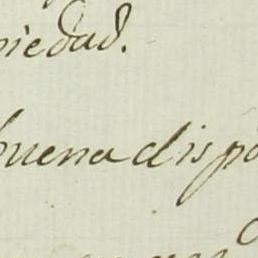 piedad.
buena dispo